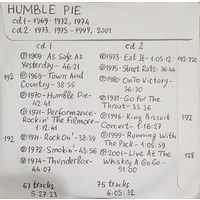 HUMBLE PIE
cd 1 - 1969, 1972, 1974
cd 2 - 1973, 1975 - 1999, 2001
cd 1
192 1969 - As Safe As
Yesterday - 46:21
1969 - Town And
Country - 38:55
1970 - Humble Pie-
42:41
1971 - Performance-
Rockin' The Fillmore-
1:12:41
192 1971 - Rock On' - 38:39
1972 - Smokin' - 43:56
1974 - Thunderbox-
44:07
67 tracks
5:27:23
cd 2
1973 - Eat It - 1:05:12 192-320
1975 - Street Rats - 36:44
1980 - On To Victory-
36:30
1981 - Go For The
Throat - 33:36
1996 - King Biscuit 192
Concert - 1:16:27
1999 - Running With
The Pack - 1:05:59
2001 - Live At The 128
Whiskey A Go-Go -
51:00
75 tracks
6:05:32